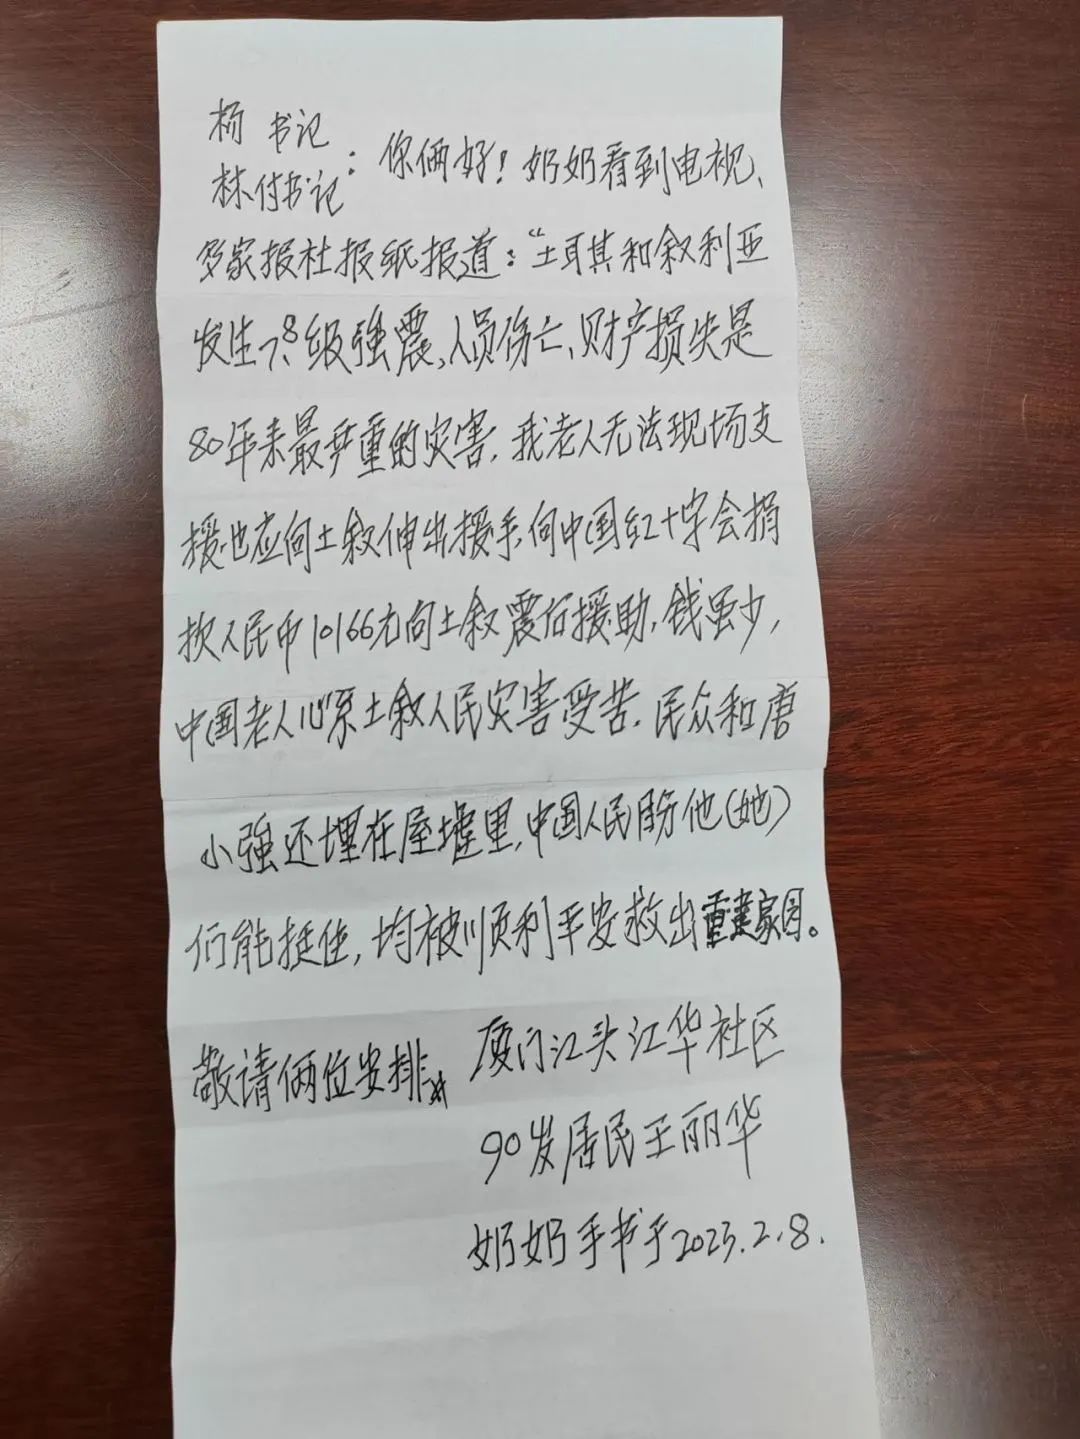 杨 书记
林付书记：你俩好！奶奶看到电视、
多家报社报纸报道："土耳其和叙利亚
发生7.8级强震,人员伤亡、财产损失是
80年来最严重的灾害,我老人无法现场支
援也应向土叙伸出援手,向中国红十字会捐
款人民币10166元向土叙震后援助,钱虽少,
中国老人心系土叙人民灾害受苦.民众和唐
小强还埋在屋墟里,中国人民盼他(她)
们能挺住,均被顺利平安救出重建家园。
敬请俩位安排 厦门江头江华社区
90岁居民王丽华
奶奶手书于2023.2.8.